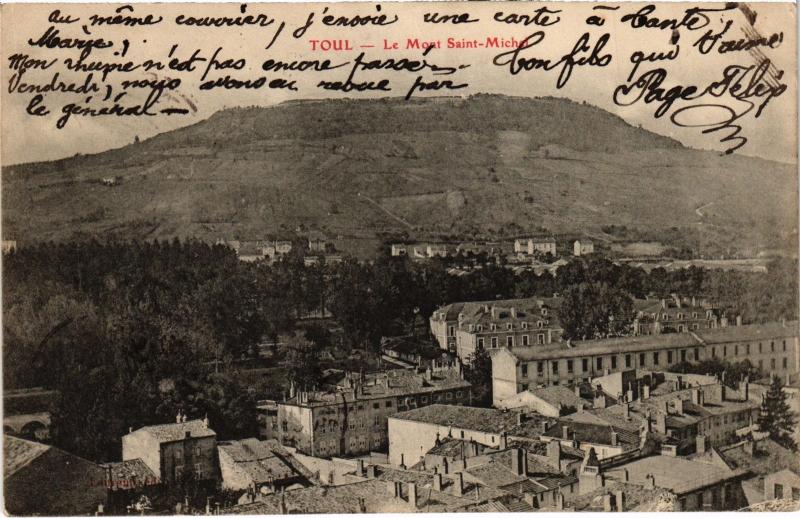 au même courrier, j'envoie une carte à tante
Marie;
TOUL — Le Mont Saint-Michel
Mon rhume n'est pas encore passé.
Vendredi, nous avons eu revue par
le général —
ton fils qui t'aime